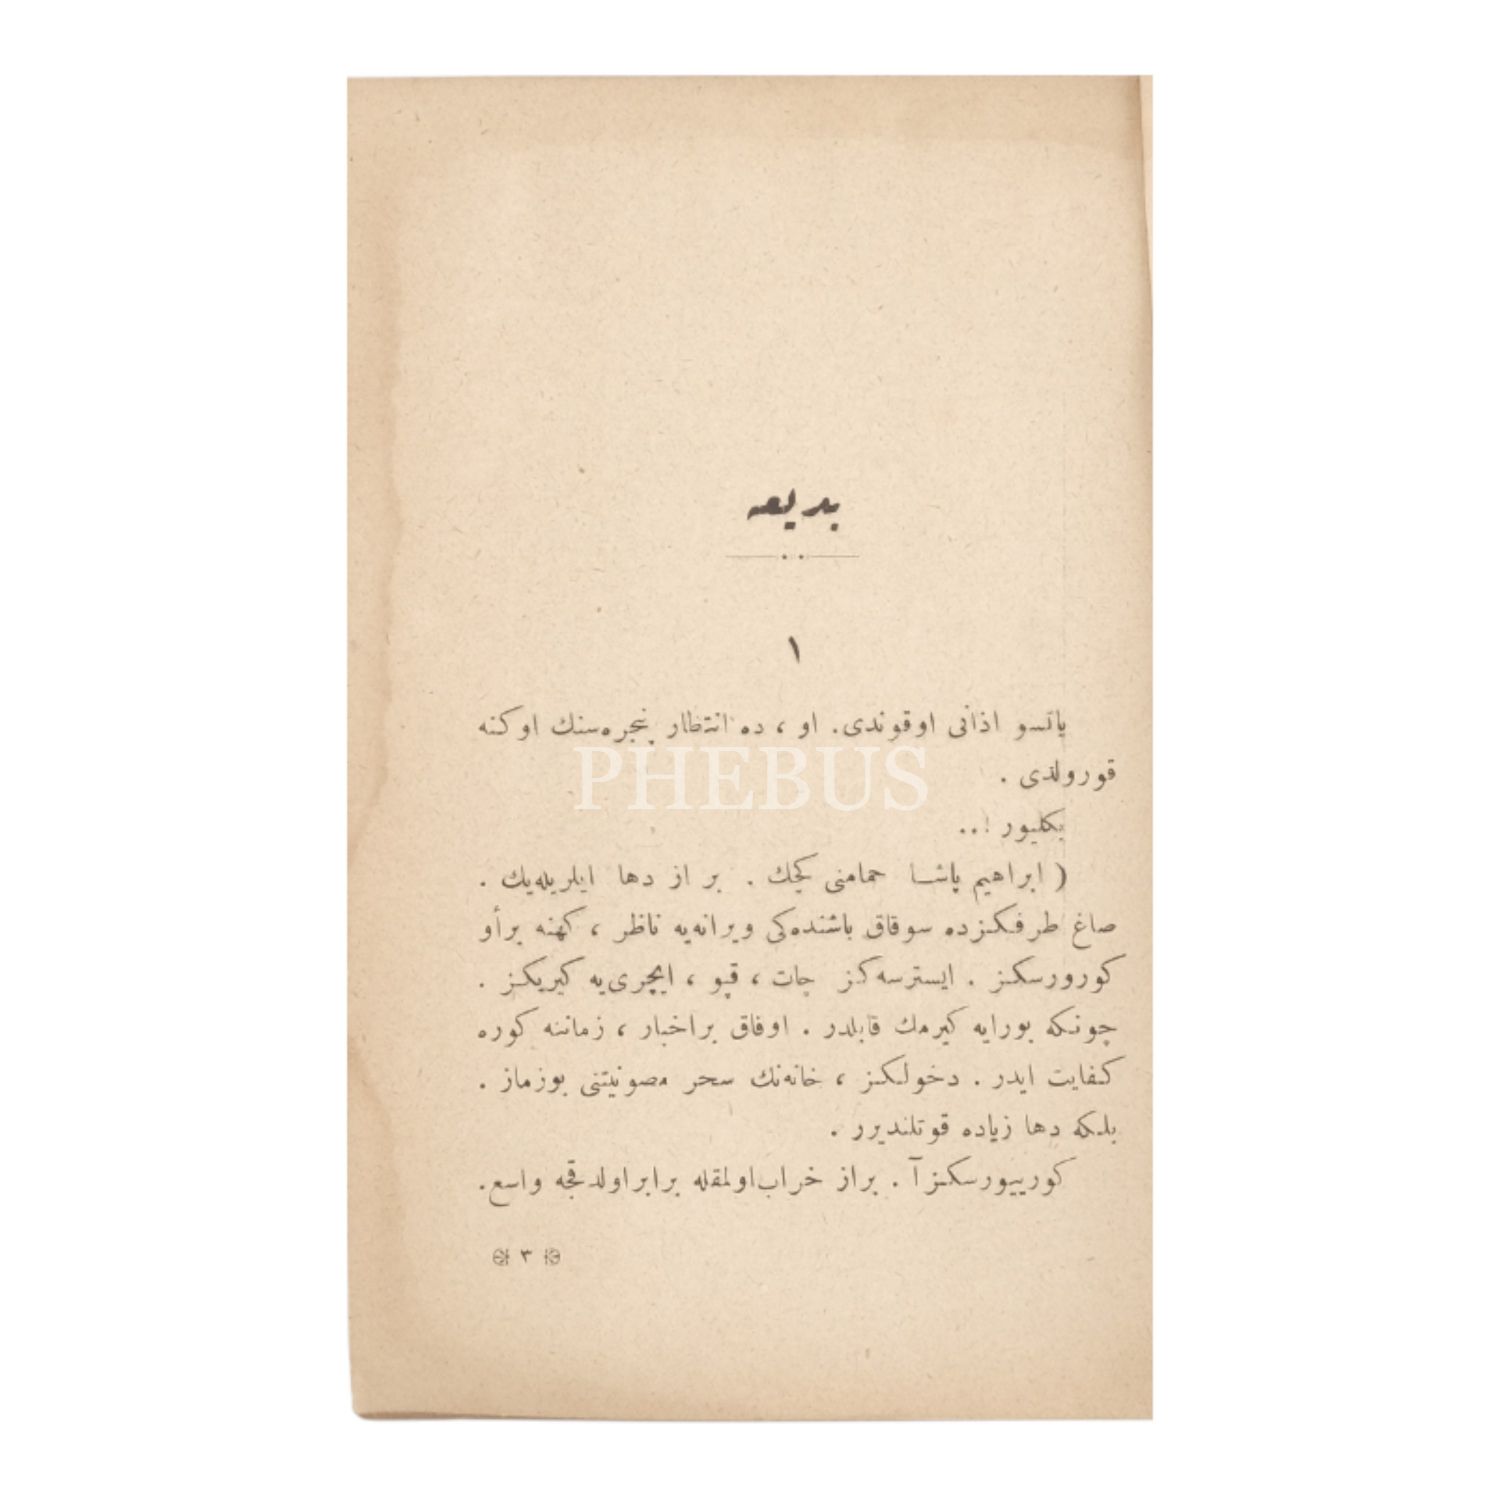 بديعه
١
ياتسو اذانى اوقوندى. او ، ده انتظار پنجره‌سنك اوكنه
قورولدى .
بكليور !..
( ابراهيم پاشا حمامنى كچك . بر از دها ايلريله‌يك .
صاغ طرفكزده سوقاق باشنده‌كى ويرانه‌يه ناظر ، كهنه برأو
كورورسكز . ايسترسه‌كز چات ، قپو ، ايچرى‌يه كيريكز .
چونكه بورايه كيرمك قابلدر . اوفاق براخبار ، زماننه كوره
كفايت ايدر . دخولكز ، خانه‌نك سحر مصونيتنى بوزماز .
بلكه دها زياده قوتلنديرر .
كورييورسكز آ . براز خراب‌اولمقله برابراولدقجه واسع.
٣
PHEBUS